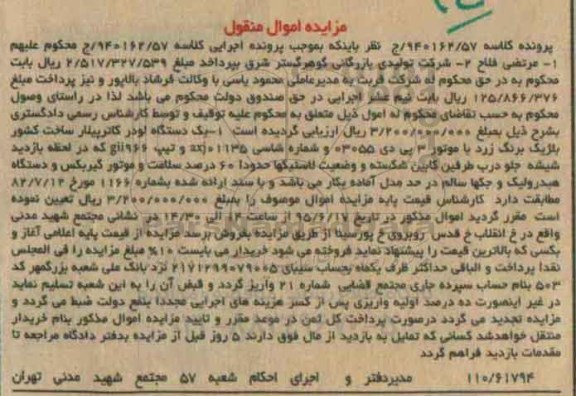 مزایده اموال منقول
پرونده کلاسه ۹۴۰۱۶۲/۵۷/ج نظر باینکه بموجب پرونده اجرایی کلاسه ۹۴۰۱۶۲/۵۷/ج محکوم علیهم
۱- مرتضی فلاح ۲- شرکت تولیدی بازرگانی گوهرگستر شرق بپرداخت مبلغ ۲/۵۱۷/۳۲۷/۵۳۹ ریال بابت
محکوم به در حق محکوم له شرکت قربت به مدیرعاملی محمود یاسی با وکالت فرشاد بالاپور و نیز پرداخت مبلغ
۱۲۵/۸۶۶/۳۷۶ ریال بابت نیم عشر اجرایی در حق صندوق دولت محکوم می باشد لذا در راستای وصول
محکوم به حسب تقاضای محکوم له اموال ذیل متعلق به محکوم علیه توقیف و توسط کارشناس رسمی دادگستری
بشرح ذیل بمبلغ ۳/۲۰۰/۰۰۰/۰۰۰ ریال ارزیابی گردیده است ۱-یک دستگاه لودر کاترپیلار ساخت کشور
بلژیک برنگ زرد با موتور ۳ پی دی ۰۳۰۵۵ و شماره شاسی axj۰۱۱۳۵ و تیپ gii۹۶۶ که در لحظه بازدید
شیشه جلو درب طرفین کابین شکسته و وضعیت لاستیکها حدودا ۶۰ درصد سلامت و موتور گیربکس و دستگاه
هیدرولیک و جکها سالم در حد مدل آماده بکار می باشد و با سند ارائه شده بشماره ۱۱۶۶ مورخ ۸۲/۷/۱۲
مطابقت دارد کارشناس قیمت پایه مزایده اموال موصوف را بمبلغ ۳/۲۰۰/۰۰۰/۰۰۰ ریال تعیین نموده
است مقرر گردید اموال مذکور در تاریخ ۹۵/۶/۱۷ از ساعت ۱۴ الی ۱۴/۳۰ در نشانی مجتمع شهید مدنی
واقع در خ انقلاب خ قدس روبروی خ پورسینا از طریق مزایده بفروش برسد مزایده از قیمت پایه اعلامی آغاز و
بکسی که بالاترین قیمت را پیشنهاد نماید فروخته می شود خریدار می بایست ۱۰% مبلغ مزایده را فی المجلس
نقدا پرداخت و الباقی حداکثر ظرف یکماه بحساب سیبای ۲۱۷۱۲۹۹۰۷۹۰۰۵ نزد بانک ملی شعبه بزرگمهر کد
۵۰۳ بنام حساب سپرده جاری مجتمع قضایی شماره ۲۱ واریز گردد و قبض آن را به این شعبه تسلیم نماید
در غیر اینصورت ده درصد اولیه واریزی پس از کسر هزینه های اجرایی مجددا بنفع دولت ضبط می گردد و
مزایده تجدید می گردد درصورت پرداخت کل ثمن در موعد مقرر و تایید مزایده اموال مذکور بنام خریدار
منتقل خواهدشد کسانی که تمایل به بازدید از مال فوق دارند ۵ روز قبل از مزایده بدفتر دادگاه مراجعه تا
مقدمات بازدید فراهم گردد
۱۱۰/۶۱۷۹۴ مدیردفتر و اجرای احکام شعبه ۵۷ مجتمع شهید مدنی تهران